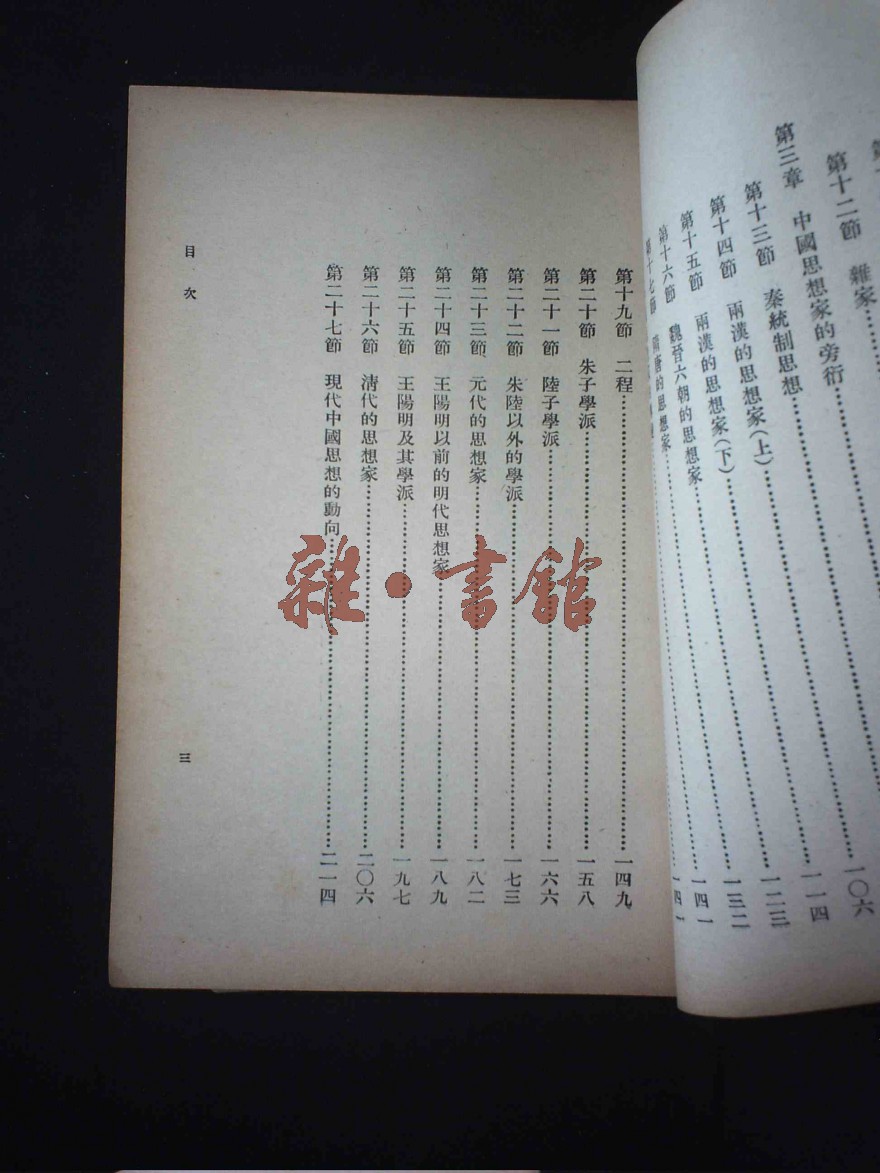 第十二節 雜家
第三章 中國思想家的旁衍
第十三節 秦統制思想……一〇六
第十四節 兩漢的思想家(上)……一一四
第十五節 兩漢的思想家(下)……一二三
第十六節 魏晉六朝的思想家……一三二
第十七節 隋唐的思想家……一四一
第十九節 二程……一四九
第二十節 朱子學派……一五八
第二十一節 陸子學派……一六六
第二十二節 朱陸以外的學派……一七三
第二十三節 元代的思想家……一八二
第二十四節 王陽明以前的明代思想家……一八九
第二十五節 王陽明及其學派……一九七
第二十六節 清代的思想家……二〇六
第二十七節 現代中國思想的動向……二一四
目次
三
雜·書館